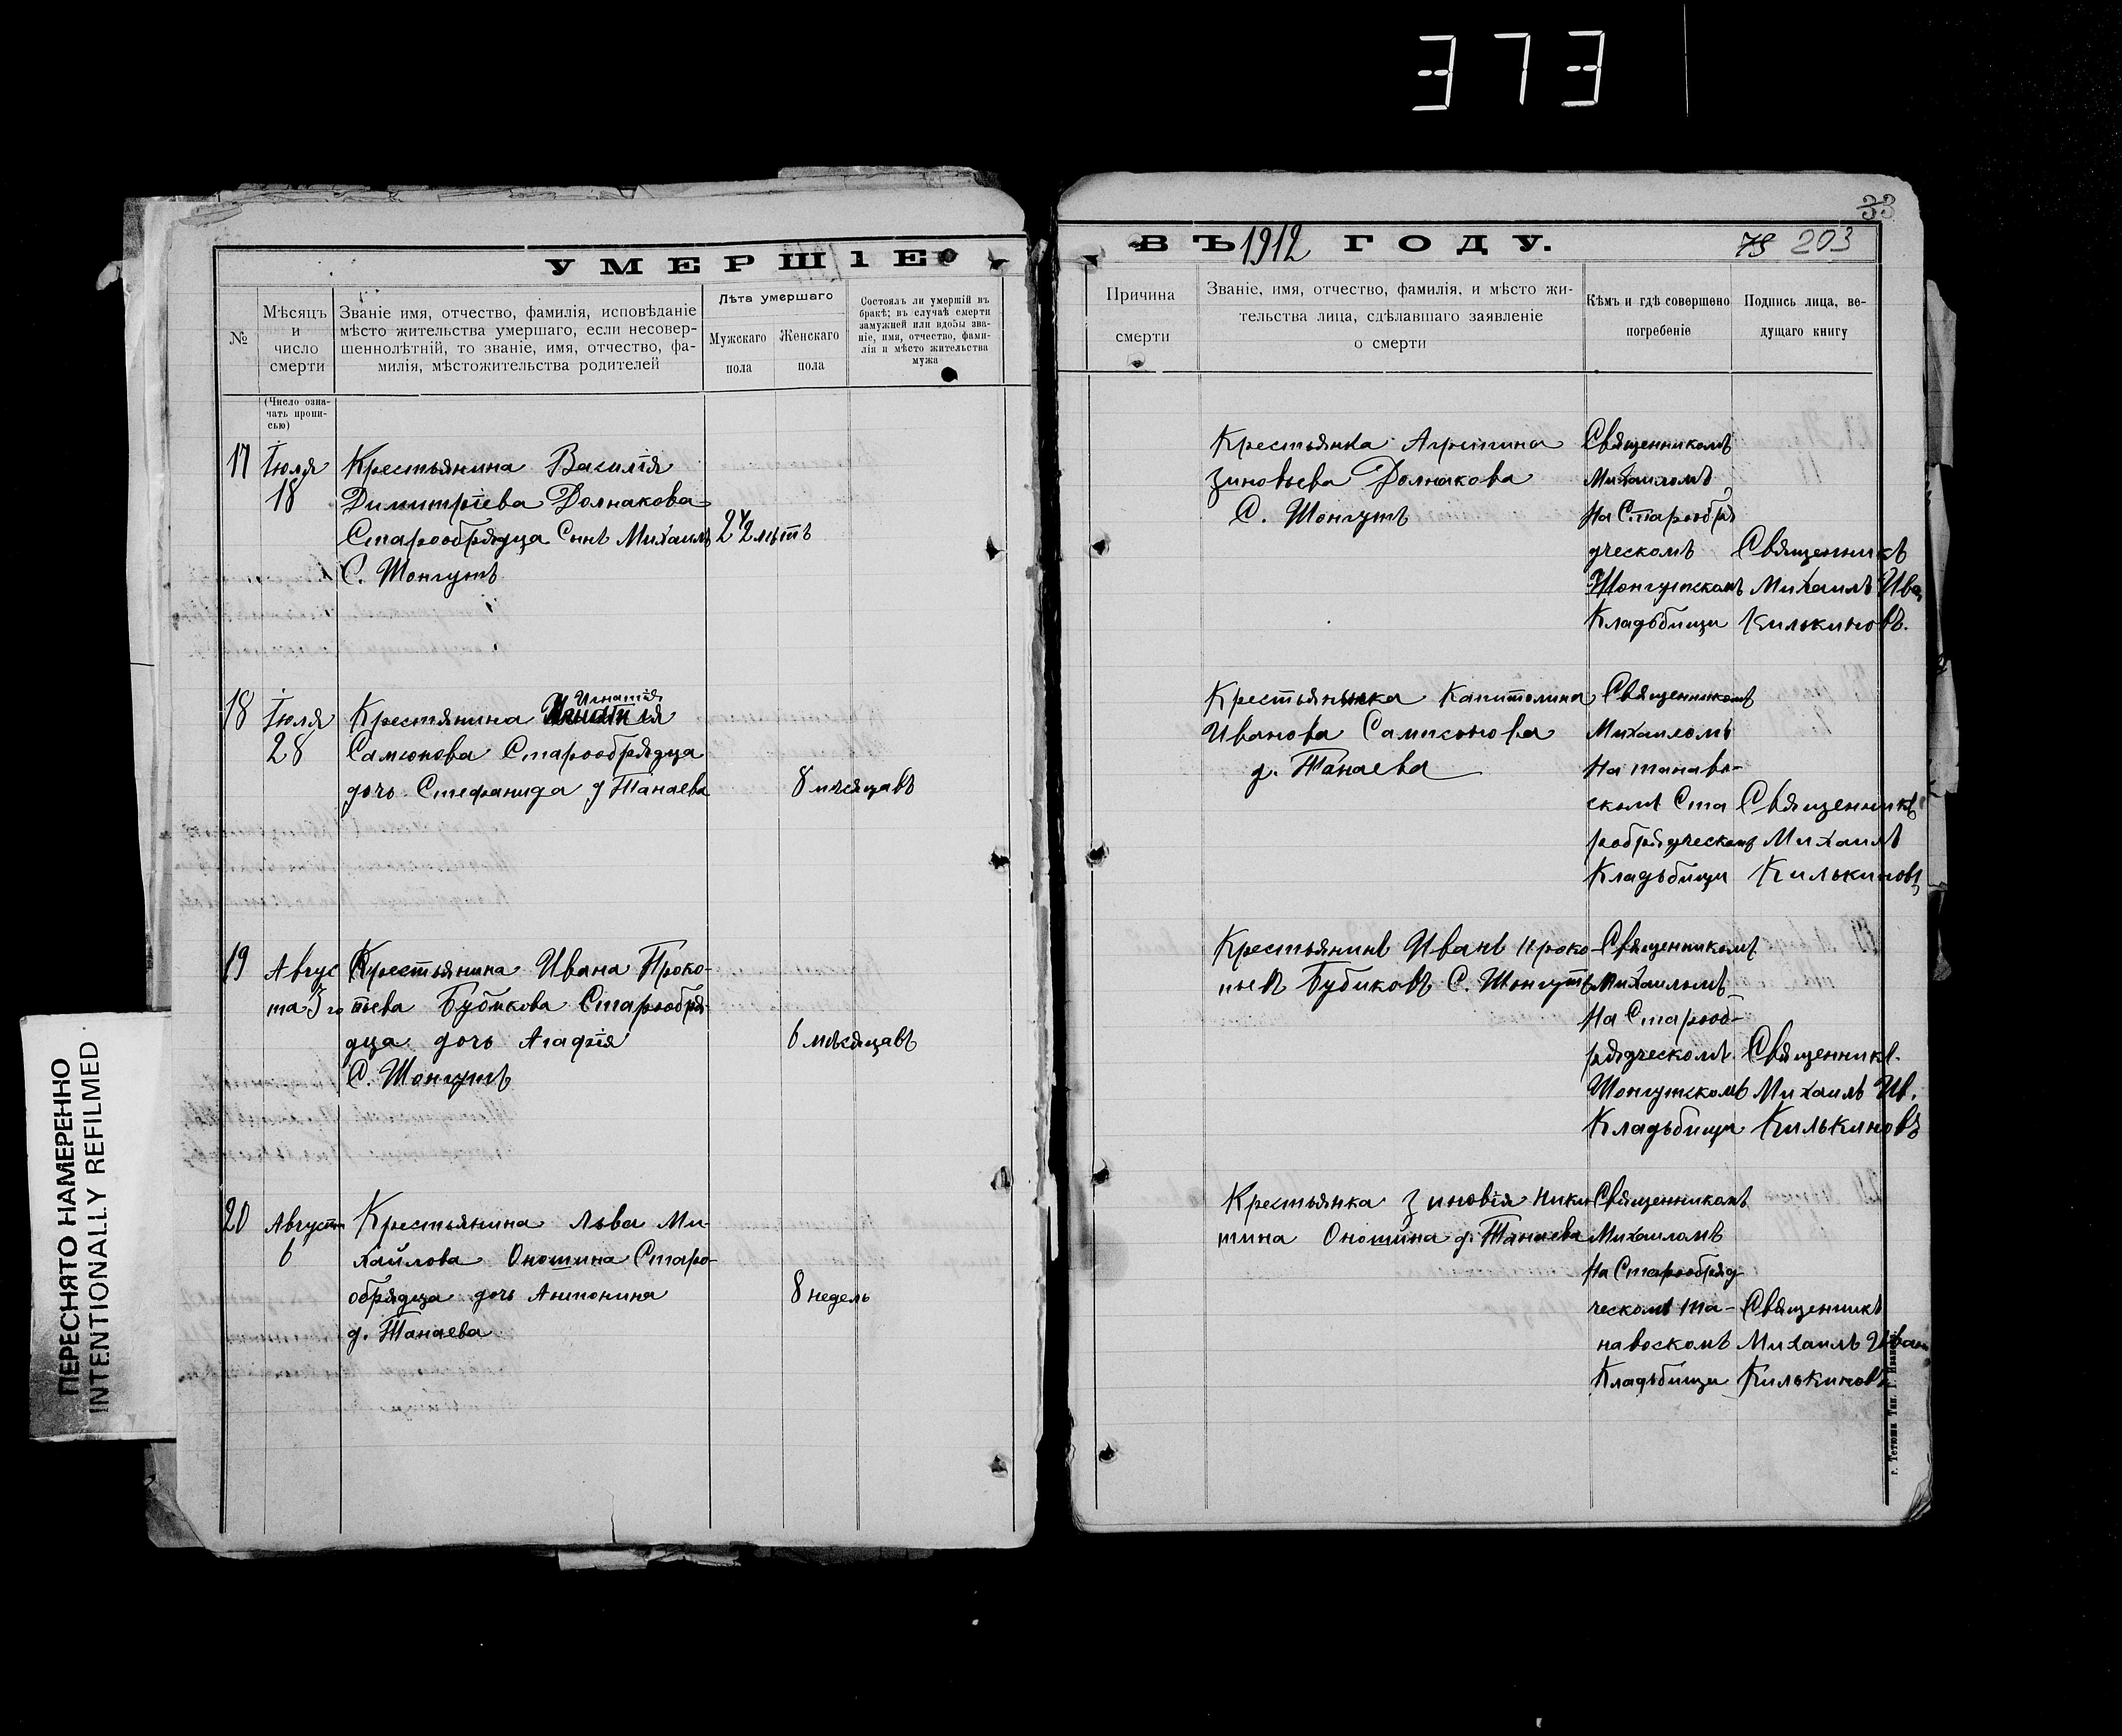 373
33
УМЕРШIЕ
ВЪ 1912 ГОДУ.
79 203
№
Мѣсяцъ
и
число
смерти
Званіе имя, отчество, фамилія, исповѣданіе
мѣсто жительства умершаго, если несовер-
шеннолѣтній, то званіе, имя, отчество, фа-
милія, мѣстожительства родителей
Лѣта умершаго
Мужскаго
пола
Женскаго
пола
Состоялъ ли умершій въ
бракѣ; въ случаѣ смерти
замужней или вдовы зва-
ніе, имя, отчество, фами-
лія и мѣсто жительства
мужа
Причина
смерти
Званіе, имя, отчество, фамилія, и мѣсто жи-
тельства лица, сдѣлавшаго заявленіе
о смерти
Кѣмъ и гдѣ совершено
погребеніе
Подпись лица, ве-
дущаго книгу
(Число озна-
чать пропи-
сью)
17
Іюля
18
Крестьянина Василія
Димитріева Долнакова
Старообрядца Сынъ Михаилъ
С. Шонгутъ
Крестьянка
Зиновьева Долнакова
С. Шонгутъ
Священникомъ
Михаиломъ
На Старообря
дческомъ
Шонгутскомъ
Кладъбищи
Священникъ
Михаилъ Ива
Килькиновъ.
18
Іюля
28
Крестянина Игнатія
Самсонова Старообрядца
дочь Стефанида д Танаева
8 месяцавъ
Крестьянка Капитолина
Иванова Самсонова
д. Танаева
Священникомъ
Михаиломъ
На танаев-
скомъ Ста
робрядческомъ
Кладъбищи
Священникъ
Михаилъ
Килькиновъ
19
Авгус
та 3 го
Крестьянина Ивана Проко-
пьева Бубикова Старообря-
дца дочь Агафія
С. Шонгутъ
6 мѣсяцавъ
Крестьянинъ Иванъ Проко-
пьевъ Бубиковъ С. Шонгутъ
Священникомъ
Михаиломъ
На Старооб-
рядческомъ
Шонгутскомъ
Кладъбищи
Священникъ.
Михаилъ Ив.
Килькиновъ
20
Август
6
Крестьянина Льва Ми-
хайлова Оношина Старо-
обрядца дочь Антонина
д. Танаева
8 недель
Крестьянка Зиновія Ники
тина Оношина д. Танаева
Священникомъ
Михаиломъ
На Старообряд
ческомъ та-
навоскомъ
Кладъбищи
Священникъ
Михаилъ Иван
Килькиновъ
г. Тетюши Тип.
ПЕРЕСНЯТО НАМЕРЕННО
INTENTIONALLY REFILMED